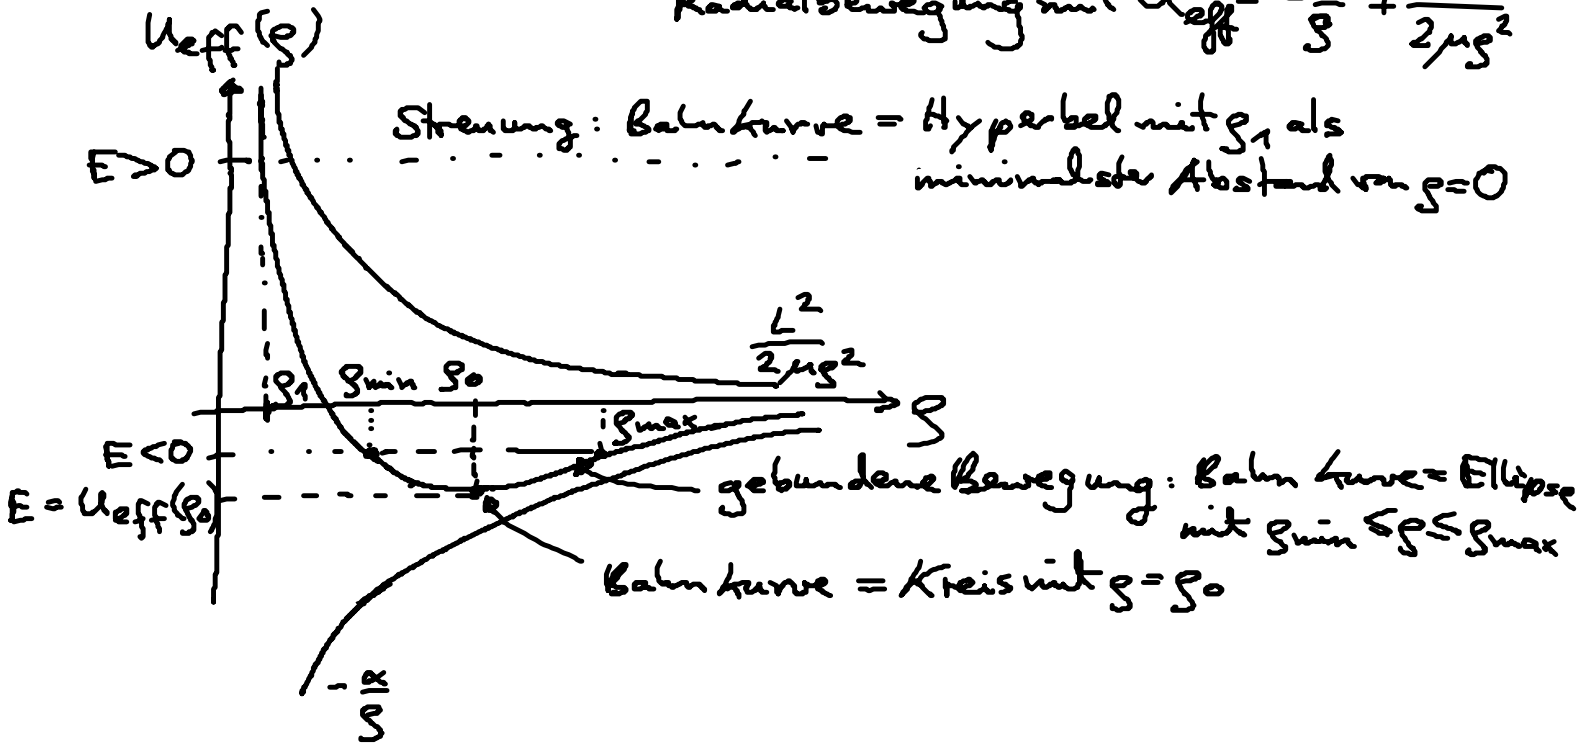 Radialbewegung mit U_eff = -α/ρ + L²/2μρ²
U_eff(ρ)
Streuung: Bahnkurve = Hyperbel mit ρ₁ als
minimalster Abstand von ρ=0
E>0
L²/2μρ²
ρ₁ ρmin ρ₀
ρ
ρmax
E<0
E = U_eff(ρ₀)
gebundene Bewegung: Bahnkurve = Ellipse
mit ρmin ≤ρ≤ ρmax
Bahnkurve = Kreis mit ρ=ρ₀
-α/ρ